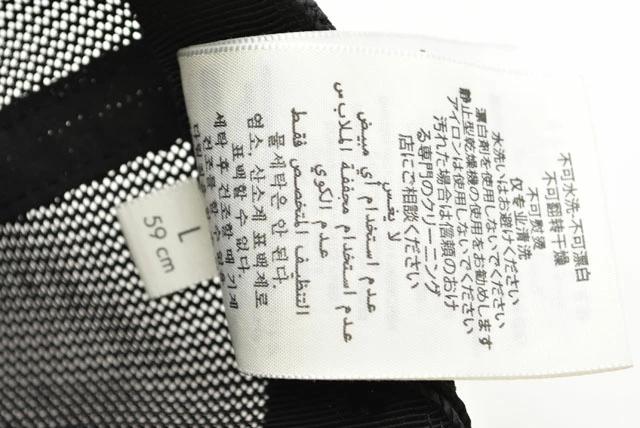 不可水洗·不可漂白
不可翻转干燥
不可熨烫
仅专业清洗
水洗いはお避けください
漂白剤を使用しないでください
静止型乾燥機の使用をお勧めします
アイロンは使用しないでください
汚れた場合は信頼のおけ
る専門のクリーニング
店にご相談ください
لا يغسل
عدم استخدام أي مبيض
عدم استخدام مجففة الملابس
عدم الكوي
التنظيف المتخصص فقط
물세탁은 안 된다.
염소, 산소계 표백제로
표백할 수 없다.
세탁 후 건조할 때 기계
건조를 할 수 없
L
59 cm